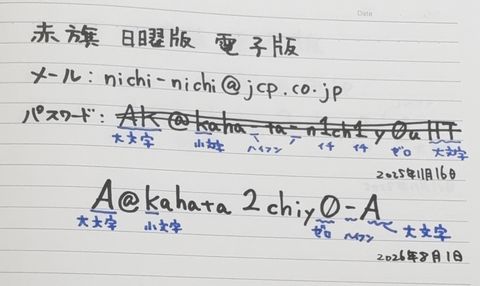 Date
赤旗 日曜版 電子版
メール：nichi-nichi@jcp.co.jp
パスワード：AK@kaha-ta-n1ch1y0uHT
大文字 小文字 ハイフン イチ イチ ゼロ 大文字
2025年11月16日
A@kahata2chiy0-A
大文字 小文字 ゼロ ハイフン 大文字
2026年8月1日